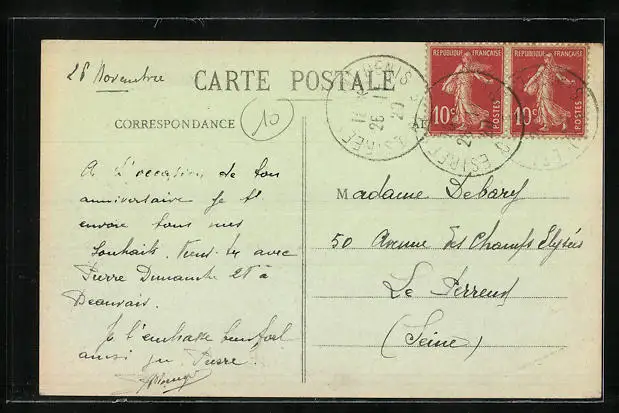 26 Novembre
CARTE POSTALE
CORRESPONDANCE
10
A l'occasion de ton
anniversaire je t'
envoie tous mes
souhaits. Viens-tu avec
Pierre Dimanche 28 à
Beauvais.
Je t'embrasse bien fort
ainsi que Pierre
REPUBLIQUE FRANÇAISE
10c POSTES
REPUBLIQUE FRANÇAISE
10c POSTES
DENIS
26
Madame Debary
50 Avenue des Champs Elysées
Le Perreux
(Seine)